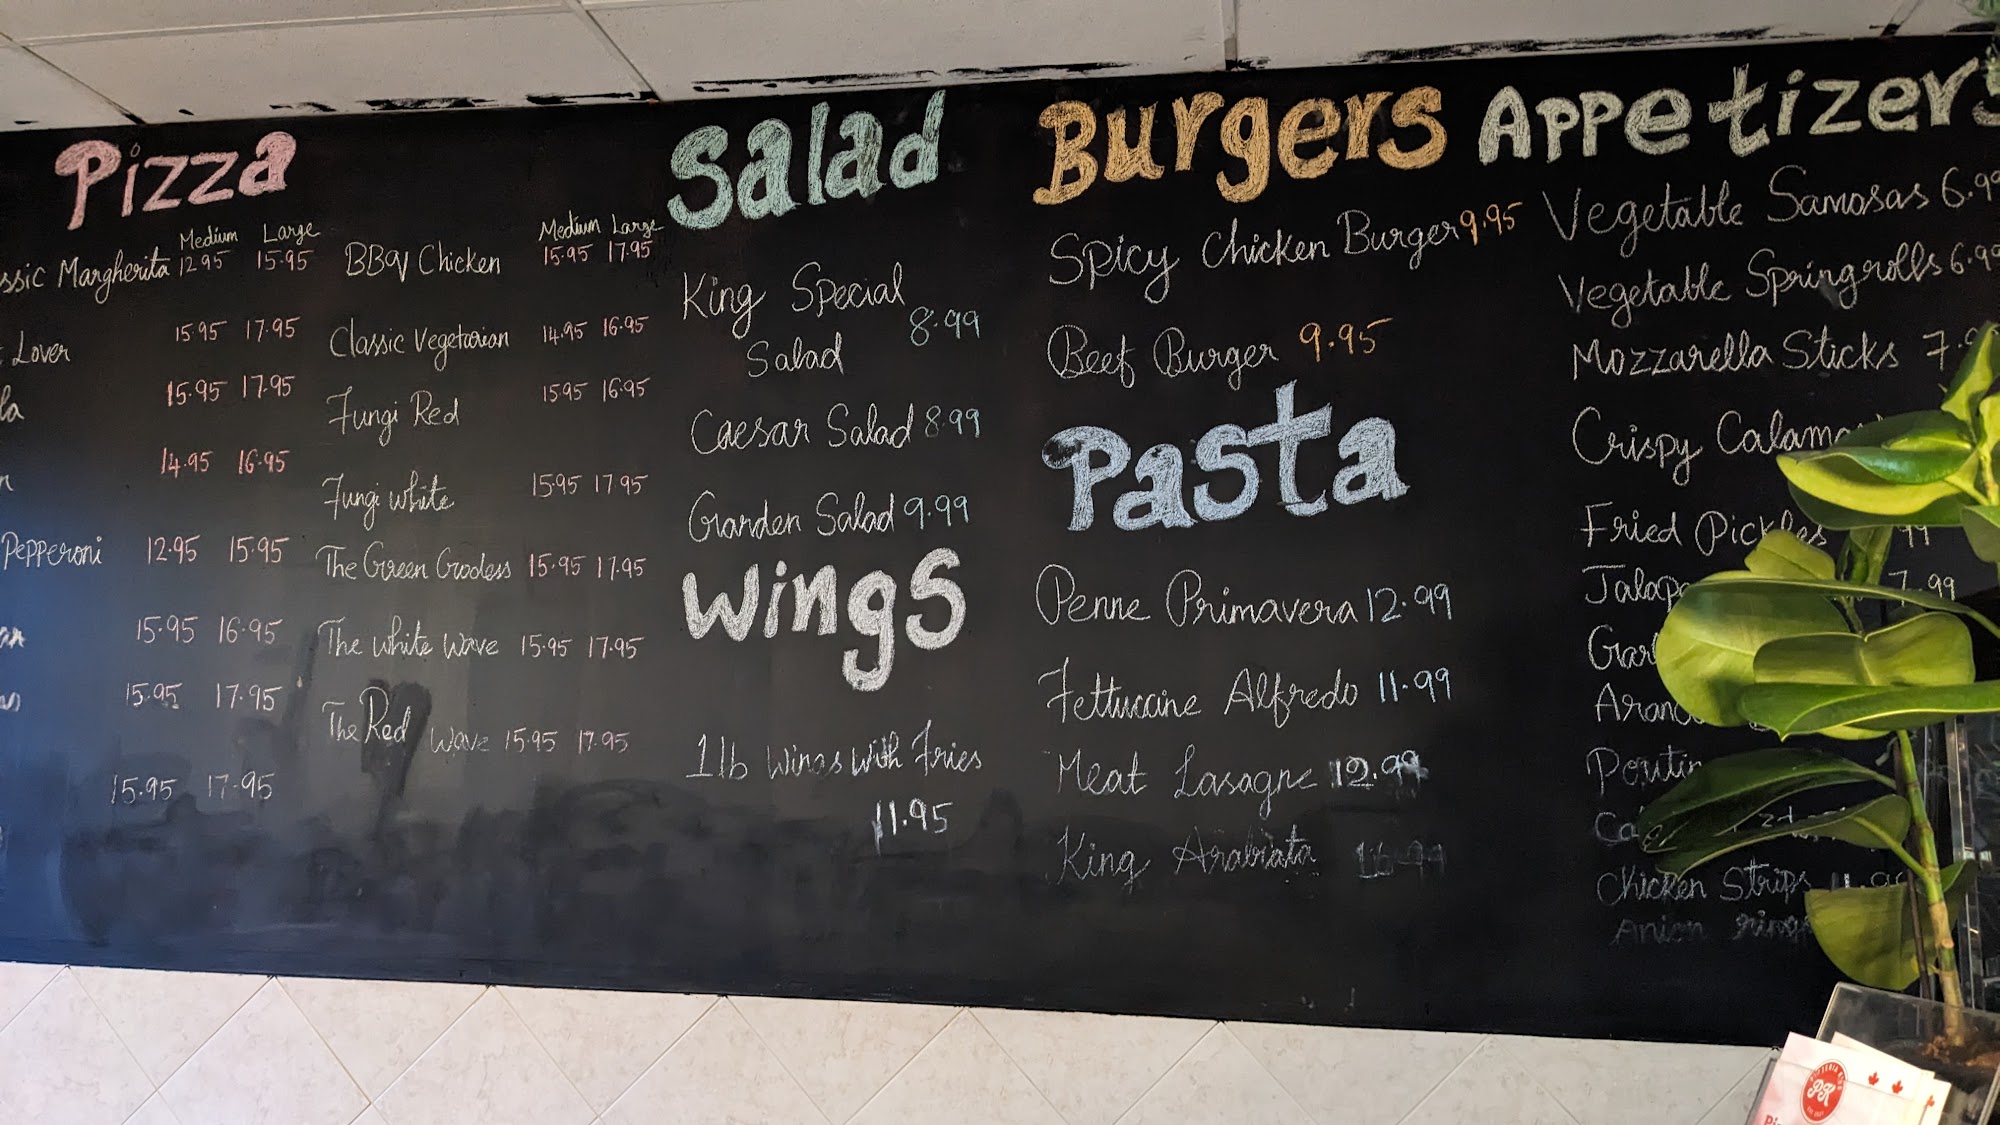 Pizza
Medium Large
Margherita 12.95 15.95
15.95 17.95
Lover
15.95 17.95
14.95 16.95
Pepperoni 12.95 15.95
15.95 16.95
15.95 17.95
15.95 17.95
Medium Large
BBQ Chicken 15.95 17.95
Classic Vegetarian 14.95 16.95
Fungi Red 15.95 16.95
Fungi White 15.95 17.95
The Green Godess 15.95 17.95
The White Wave 15.95 17.95
The Red Wave 15.95 17.95
Salad
King Special
Salad 8.99
Caesar Salad 8.99
Garden Salad 9.99
Wings
1lb Wings with Fries
11.95
Burgers
Spicy Chicken Burger 9.95
Beef Burger 9.95
Pasta
Penne Primavera 12.99
Fettuccine Alfredo 11.99
Meat Lasagne 12.99
King Arabiata
Appetizers
Vegetable Samosas 6.99
Vegetable Springrolls 6.99
Mozzarella Sticks
Crispy
Fried Pickles
7.99
Chicken Strips
PK